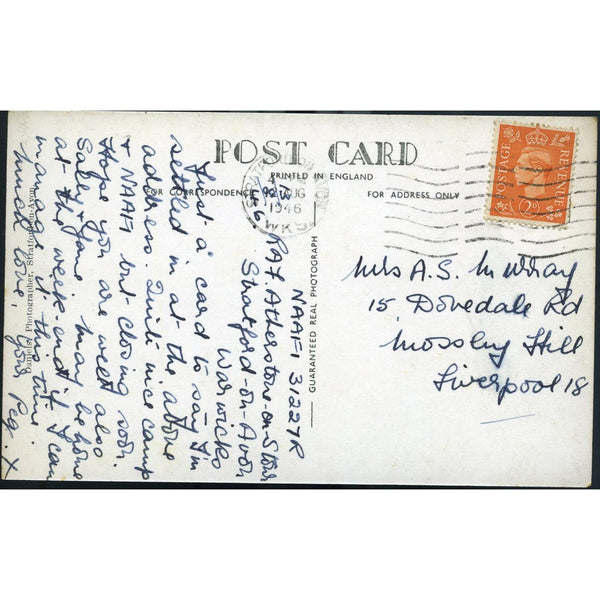 POST CARD
PRINTED IN ENGLAND
FOR CORRESPONDENCE
FOR ADDRESS ONLY
AUG
1946
POSTAGE
REVENUE
2D
GUARANTEED REAL PHOTOGRAPH
Daniels, Photographer, Stratford-on-Avon
NAAFI 31227R
RAF. Atherstone-on-Stour
Stratford-on-Avon
Warwicks
Just a card to say I'm
settled in at the above
address. Quite nice camp
& NAAFI but closing soon.
Hope you are well also
Sally & Jane may be home
at the week-end if I can
manage it this time.
much love, Peg. X
Mrs A.S. Murray
15, Dovedale Rd
Mossley Hill
Liverpool 18